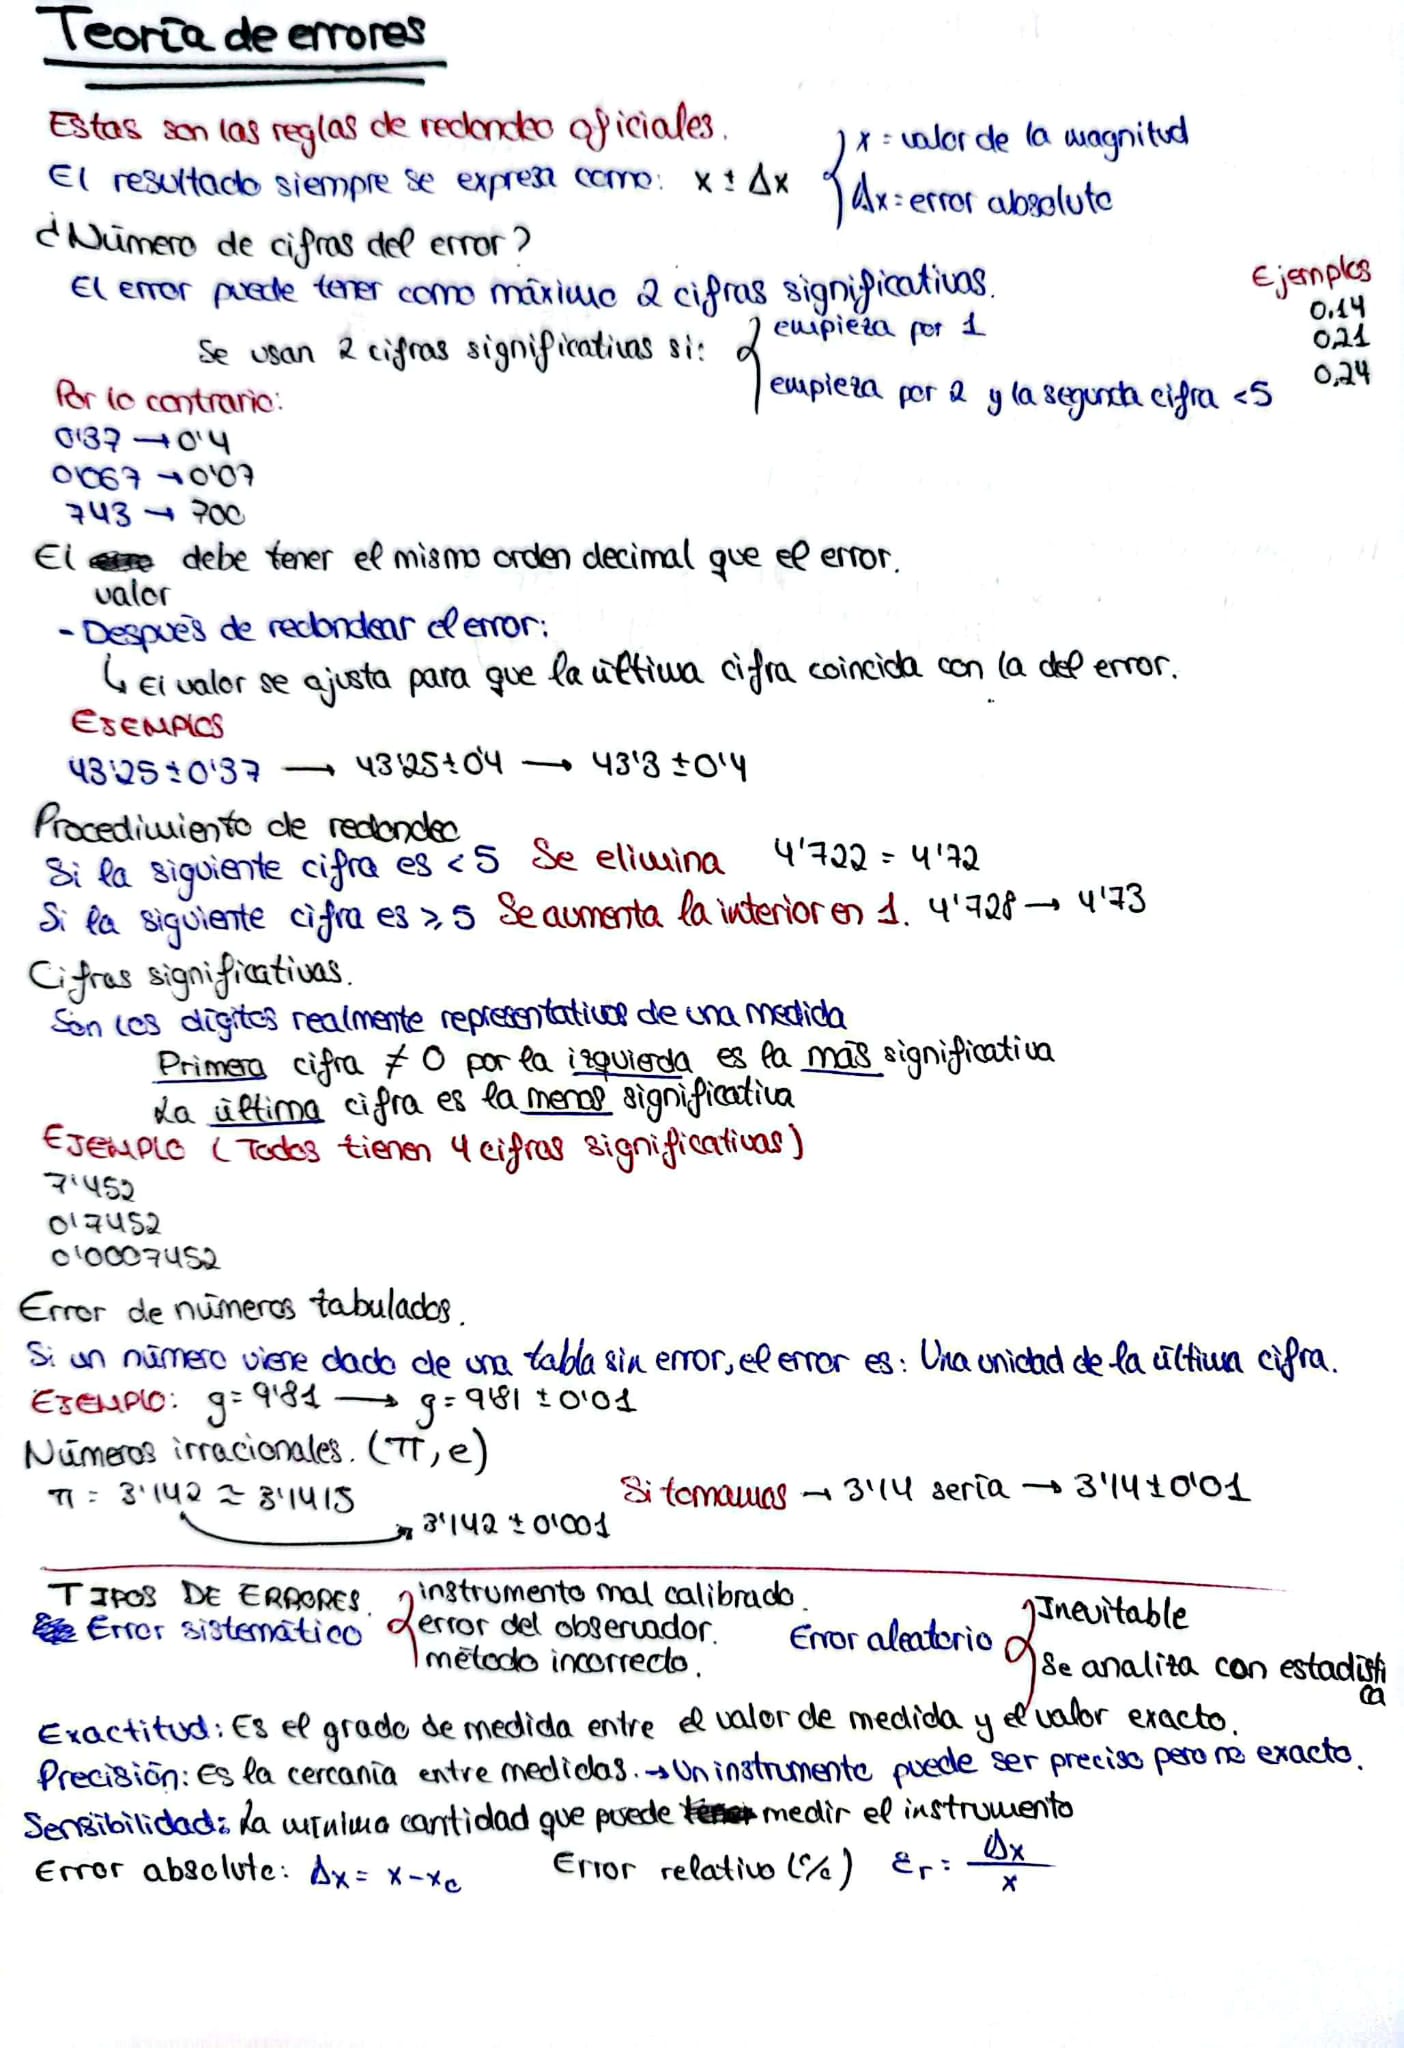 Teoría de errores
Estas son las reglas de redondeo oficiales.
El resultado siempre se expresa como: x ± Δx { x = valor de la magnitud
Δx = error absoluto
¿Número de cifras del error?
El error puede tener como máximo 2 cifras significativas.
Se usan 2 cifras significativas si: { empieza por 1
empieza por 2 y la segunda cifra <5
Ejemplos
0.14
0,21
0,24
Por lo contrario:
0'37 → 0'4
0'067 → 0'07
743 → 700
El valor debe tener el mismo orden decimal que el error.
- Después de redondear el error:
↳ El valor se ajusta para que la última cifra coincida con la del error.
EJEMPLOS
43'25 ± 0'37 → 43'25 ± 0'4 → 43'3 ± 0'4
Procedimiento de redondeo
Si la siguiente cifra es < 5 Se elimina 4'722 = 4'72
Si la siguiente cifra es ≥ 5 Se aumenta la interior en 1. 4'728 → 4'73
Cifras significativas.
Son los dígitos realmente representativos de una medida
Primera cifra ≠ 0 por la izquierda es la más significativa
La última cifra es la menos significativa
EJEMPLO (Todos tienen 4 cifras significativas)
7'452
0'7452
0'0007452
Error de números tabulados.
Si un número viene dado de una tabla sin error, el error es: Una unidad de la última cifra.
EJEMPLO: g = 9'81 → g = 9'81 ± 0'01
Números irracionales. (π, e)
π = 3'142 ≈ 3'1415 Si tomamos → 3'14 sería → 3'14 ± 0'01
3'142 ± 0'001
TIPOS DE ERRORES.
Error sistemático { instrumento mal calibrado.
error del observador.
método incorrecto.
Error aleatorio { Inevitable
Se analiza con estadística
Exactitud: Es el grado de medida entre el valor de medida y el valor exacto.
Precisión: Es la cercanía entre medidas. → Un instrumento puede ser preciso pero no exacto.
Sensibilidad: La mínima cantidad que puede medir el instrumento
Error absoluto: Δx = x - x₀ Error relativo (%) εr = Δx / x